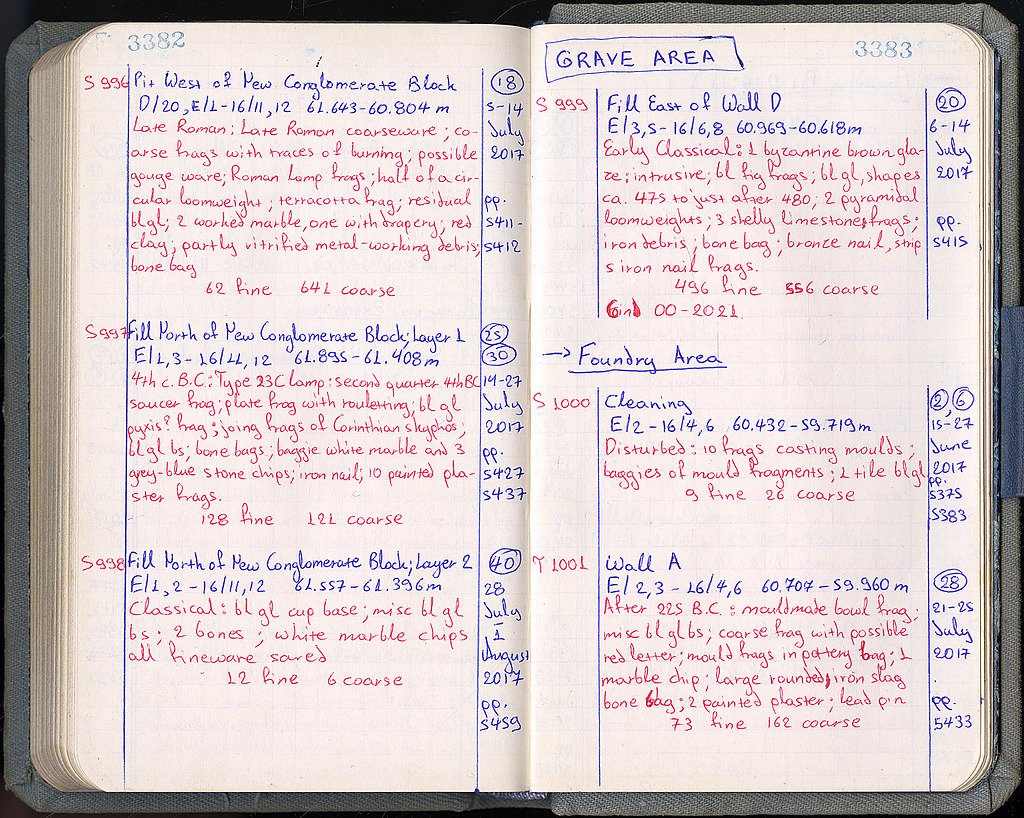 3382
S 996 Pit West of New Conglomerate Block 18
D/20, E/1-16/11,12 61.643-60.804 m 5-14
Late Roman: Late Roman coarseware; co- July
arse frags with traces of burning; possible 2017
gouge ware; Roman lamp frags; half of a cir-
cular loomweight; terracotta frag; residual pp.
bl gl; 2 worked marble, one with drapery; red 5411-
clay; partly vitrified metal-working debris; 5412
bone bag
62 fine 641 coarse
S 997 Fill North of New Conglomerate Block; Layer 1 25
E/1,3-16/11,12 61.895-61.408m 30
4th c. B.C.: Type 23C lamp: second quarter 4th BC 14-27
saucer frag; plate frag with rouletting; bl gl July
pyxis? frag; joing frags of Corinthian skyphos; 2017
bl gl bs; bone bags; baggie white marble and 3 pp.
grey-blue stone chips; iron nail; 10 painted pla- 5427
ster frags. 5437
128 fine 121 coarse
S 998 Fill North of New Conglomerate Block; Layer 2 40
E/1,2-16/11,12 61.557-61.396m 28
Classical: bl gl cup base; misc bl gl July
bs; 2 bones; white marble chips - 1
all fineware saved August
12 fine 6 coarse 2017
pp.
5459
3383
GRAVE AREA
S 999 Fill East of Wall D 20
E/3,5-16/6,8 60.969-60.618m 6-14
Early Classical: 1 byzantine brown gla- July
ze; intrusive; bl fig frags; bl gl, shapes 2017
ca. 475 to just after 480; 2 pyramidal
loomweights; 3 shelly limestone frags; pp.
iron debris; bone bag; bronze nail, strip 5415
5 iron nail frags.
496 fine 556 coarse
Gin 00-2021
→ Foundry Area
S 1000 Cleaning 2, 6
E/2-16/4,6 60.432-59.719m 15-27
Disturbed: 10 frags casting moulds; June
baggies of mould fragments; 1 tile bl gl 2017
9 fine 26 coarse pp.
5375
5383
T 1001 Wall A
E/2,3-16/4,6 60.707-59.960 m 28
After 225 B.C.: mouldmade bowl frag; 21-25
misc bl gl bs; coarse frag with possible July
red letter; mould frags in pottery bag; 1 2017
marble chip; large rounded iron slag
bone bag; 2 painted plaster; lead pin pp.
73 fine 162 coarse 5433